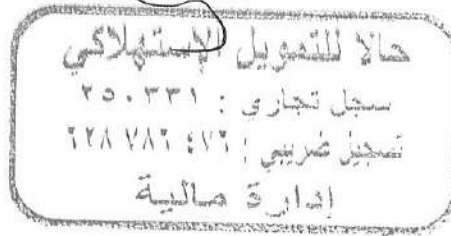 حالا للتمويل الإستهلاكي
سجل تجاري : ٢٥٠٣٣١
تسجيل ضريبي : ٦٢٨ ٧٨٦ ٤٧٦
إدارة مالية